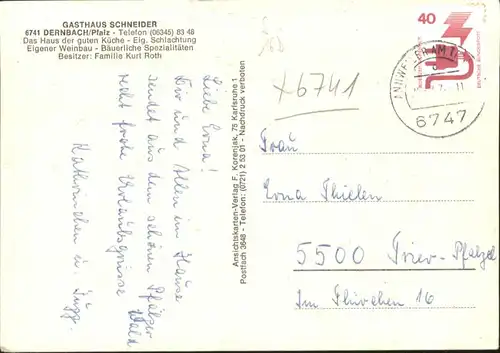 GASTHAUS SCHNEIDER
6741 DERNBACH/Pfalz - Telefon (06345) 83 46
Das Haus der guten Küche - Eig. Schlachtung
Eigener Weinbau - Bäuerliche Spezialitäten
Besitzer: Familie Kurt Roth
Liebe Erna!
Dir und Allen im Hause
sendet aus dem schönen Pfälzer
Wald
recht frohe Urlaubsgrüsse
Kathrinchen u. Jupp.
Ansichtskarten-Verlag F. Korenjak, 75 Karlsruhe 1
Postfach 3648 - Telefon: (0721) 2 53 01 - Nachdruck verboten
+6741
40
DEUTSCHE BUNDESPOST
6747
Frau
Erna Thielen
5500 Trier-Pfalzel
Im 16